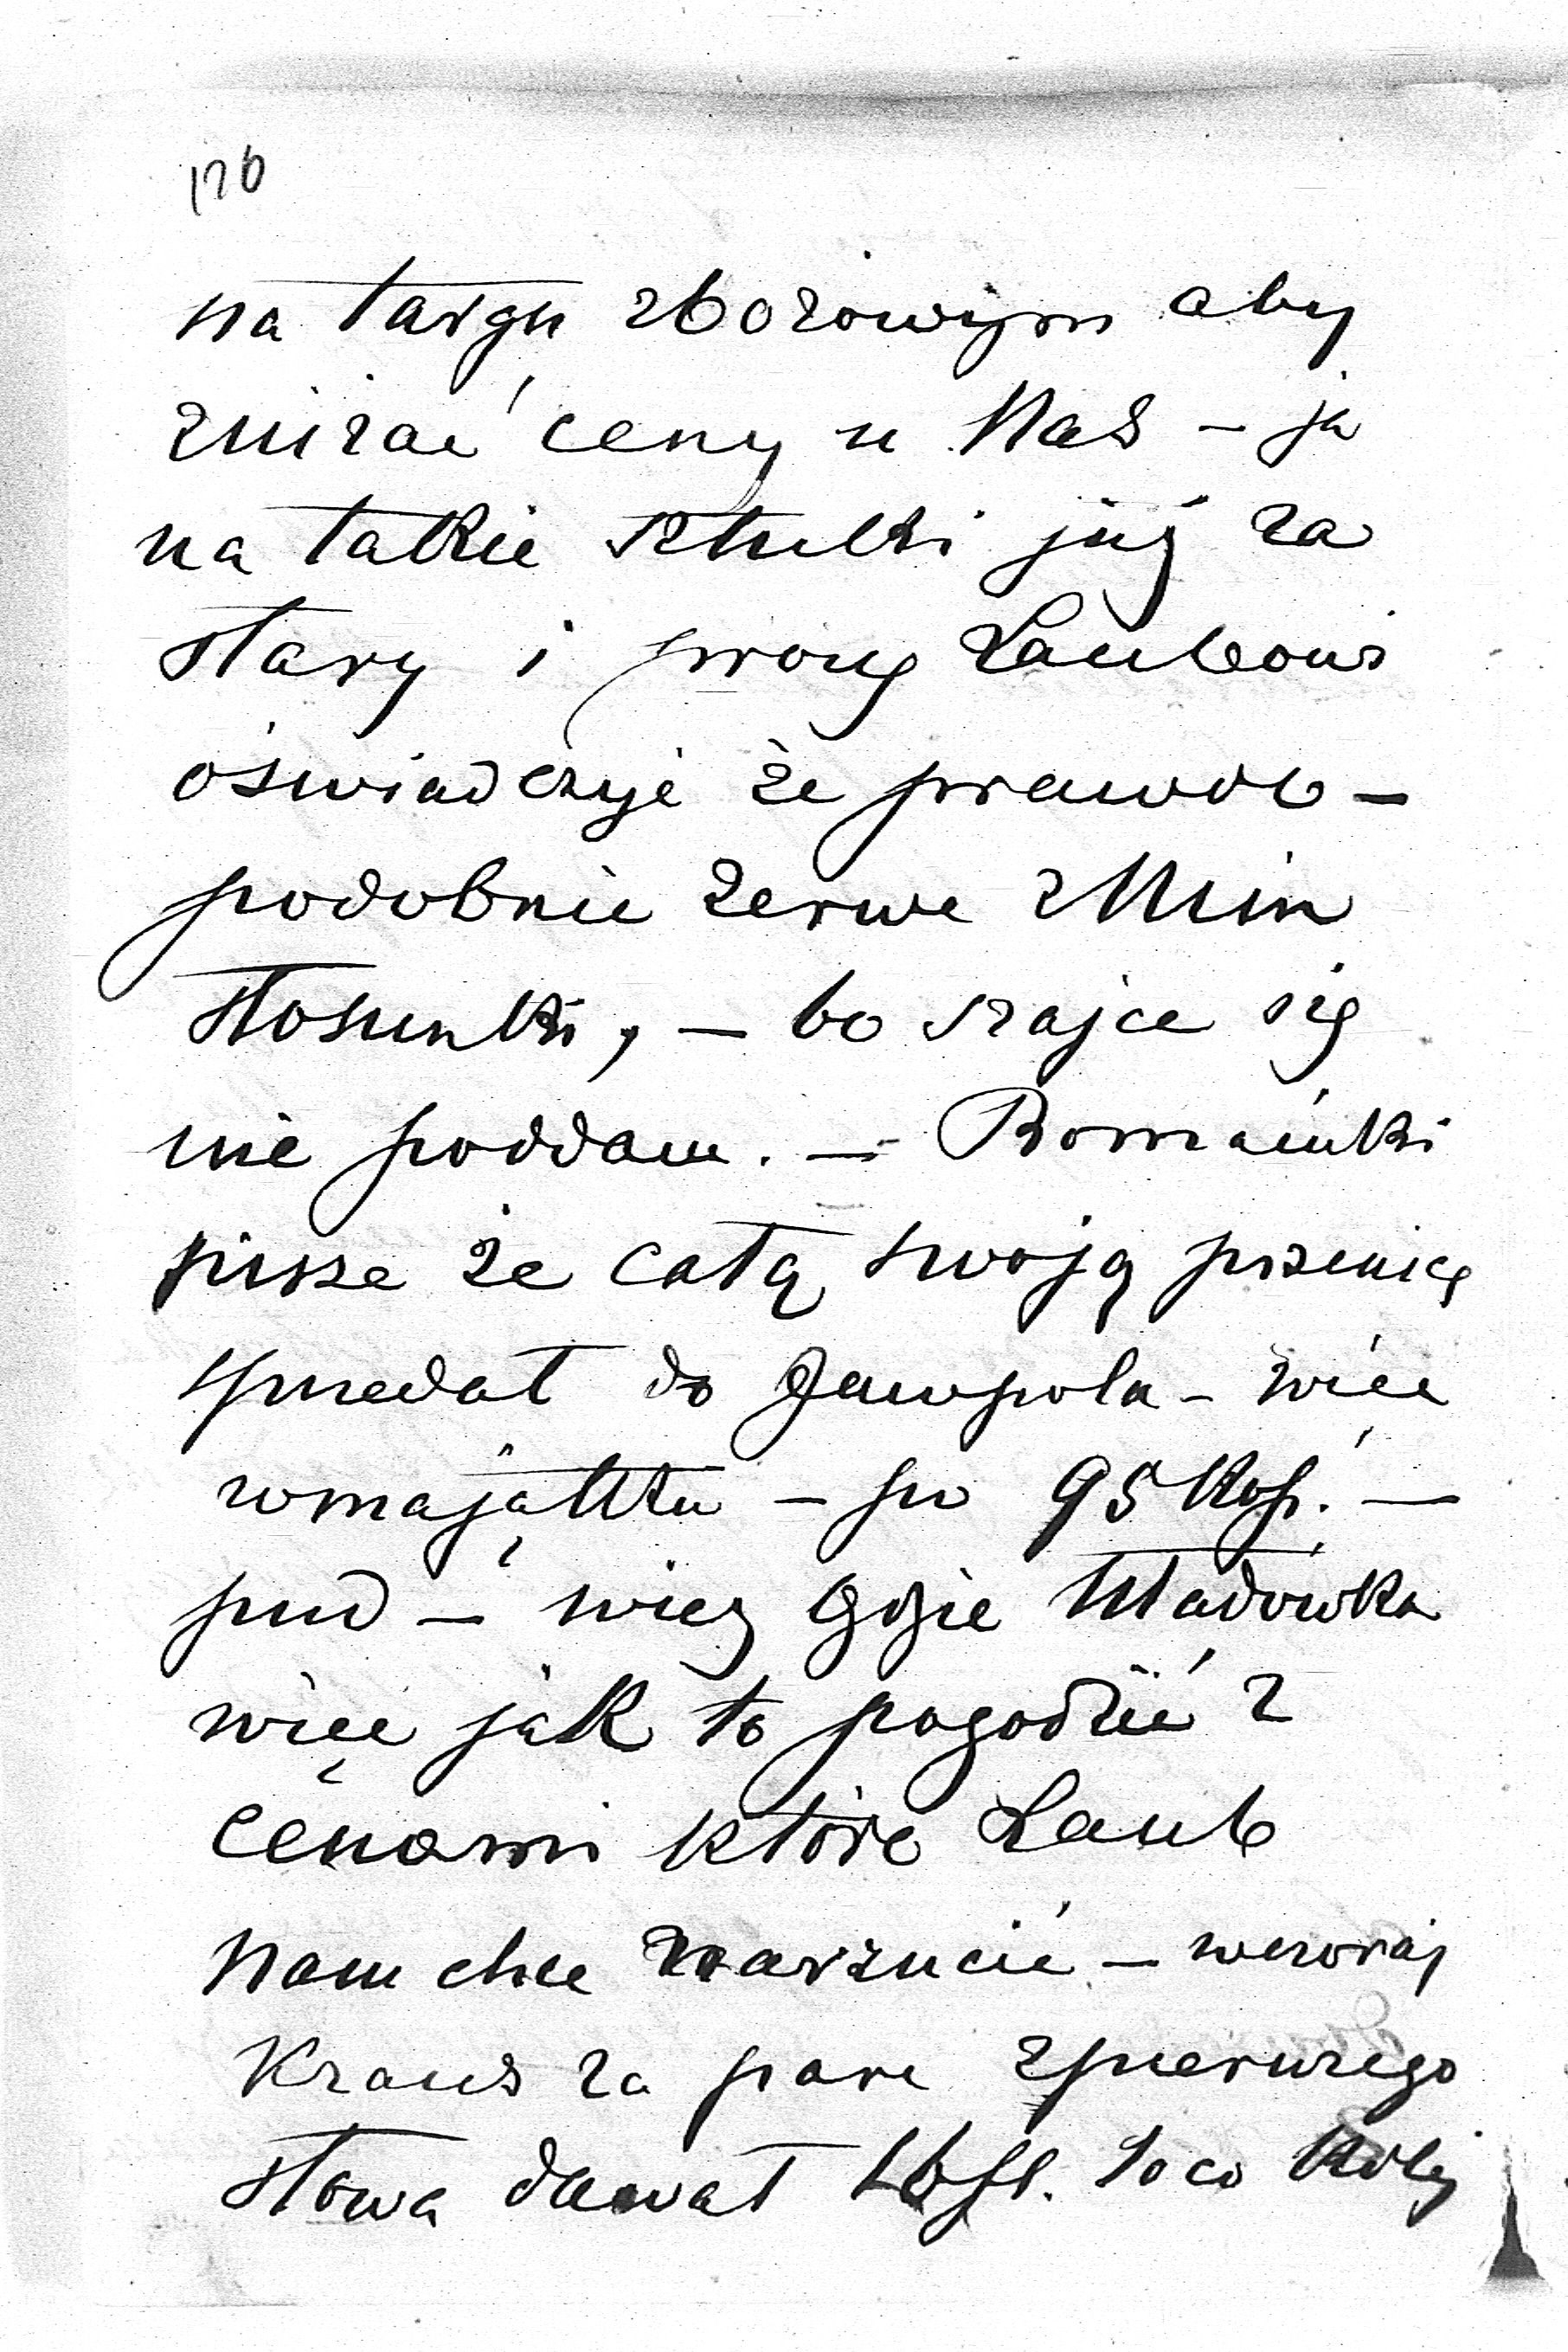 126
na targu zbożowym aby
zniżać ceny u Nas – ja
na takie sztuki już za
stary i proszę Laubowi
oświadczyć że prawdo–
podobnie zerwę z Nim
stosunki, – bo szajce się
nie poddam. – Romański
pisze że całą swoją pszenicę
sprzedał do Jampola – więc
w majątku – po 95 Kop. –
pud – więc gdzie Władówka
więc jak to pogodzić z
cenami które Laub
Nam chce narzucić – wczoraj
Kraus za parę z pierwszego
słowa dawał 16 fl. loco Kolej